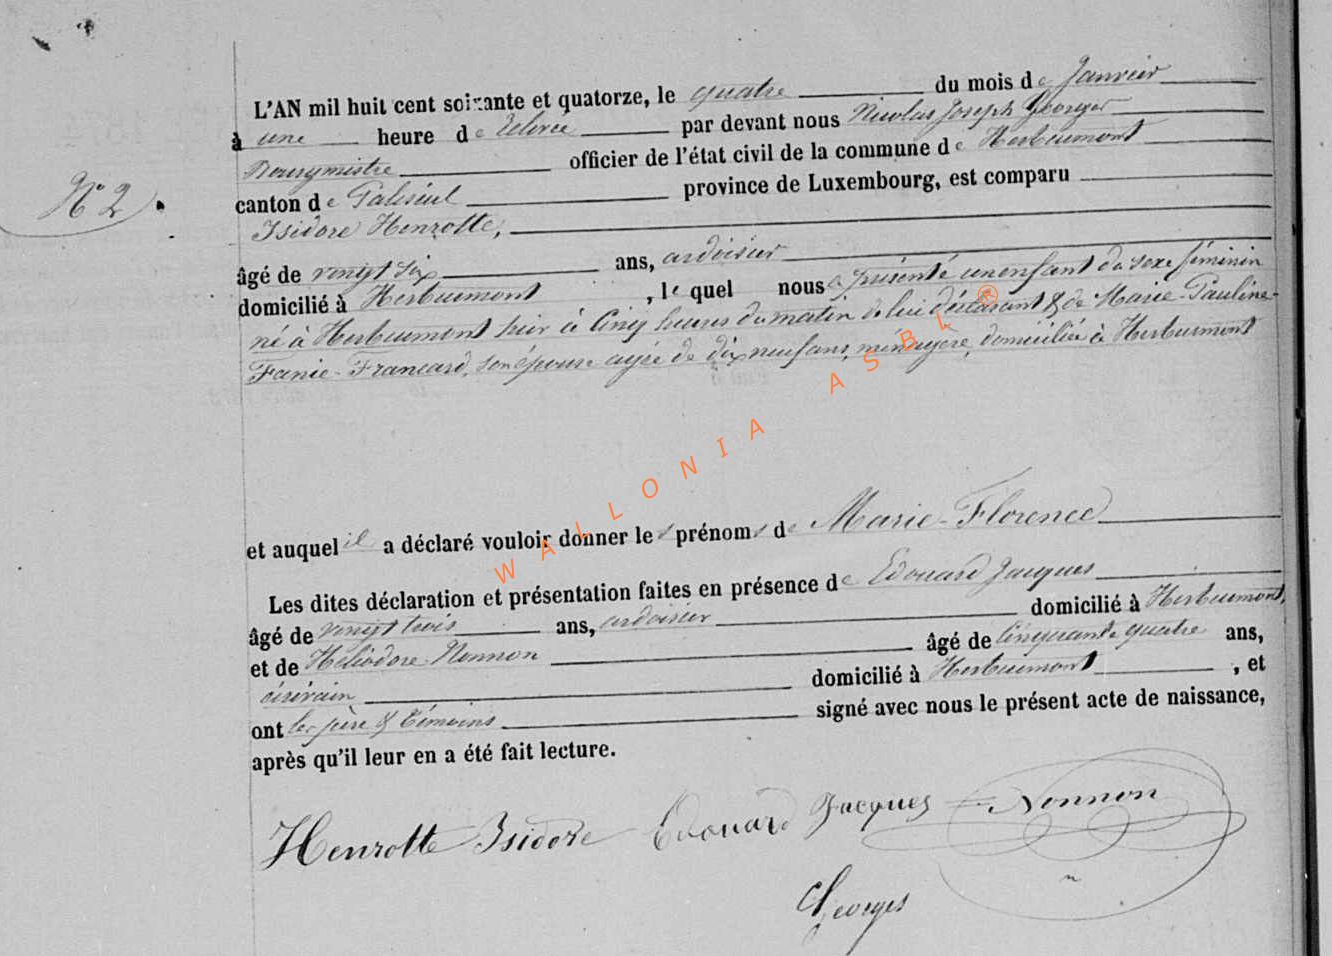 L'AN mil huit cent soixante et quatorze, le quatre du mois de Janvier
à une heure de relevée par devant nous Nicolas Joseph Georges
Bourgmestre officier de l'état civil de la commune de Herbeumont
N° 2.
canton de Paliseul province de Luxembourg, est comparu
Isidore Henrotte,
âgé de vingt six ans, ardoisier
domicilié à Herbeumont, lequel nous a présenté un enfant du sexe féminin
né à Herbeumont hier à cinq heures du matin de lui déclarant & de Marie-Pauline-
Fanie Francard, son épouse agée de dix neuf ans, ménagère, domiciliée à Herbeumont
et auquel il a déclaré vouloir donner les prénoms de Marie-Florence
Les dites déclaration et présentation faites en présence de Edouard Jacques
âgé de vingt trois ans, ardoisier domicilié à Herbeumont,
et de Héliodore Nonnon âgé de cinquante quatre ans,
domicilié à Herbeumont, et
ont les père & témoins signé avec nous le présent acte de naissance,
après qu'il leur en a été fait lecture.
Henrotte Isidore Edouard Jacques Nonnon
Georges
WALLONIA ASBL ®